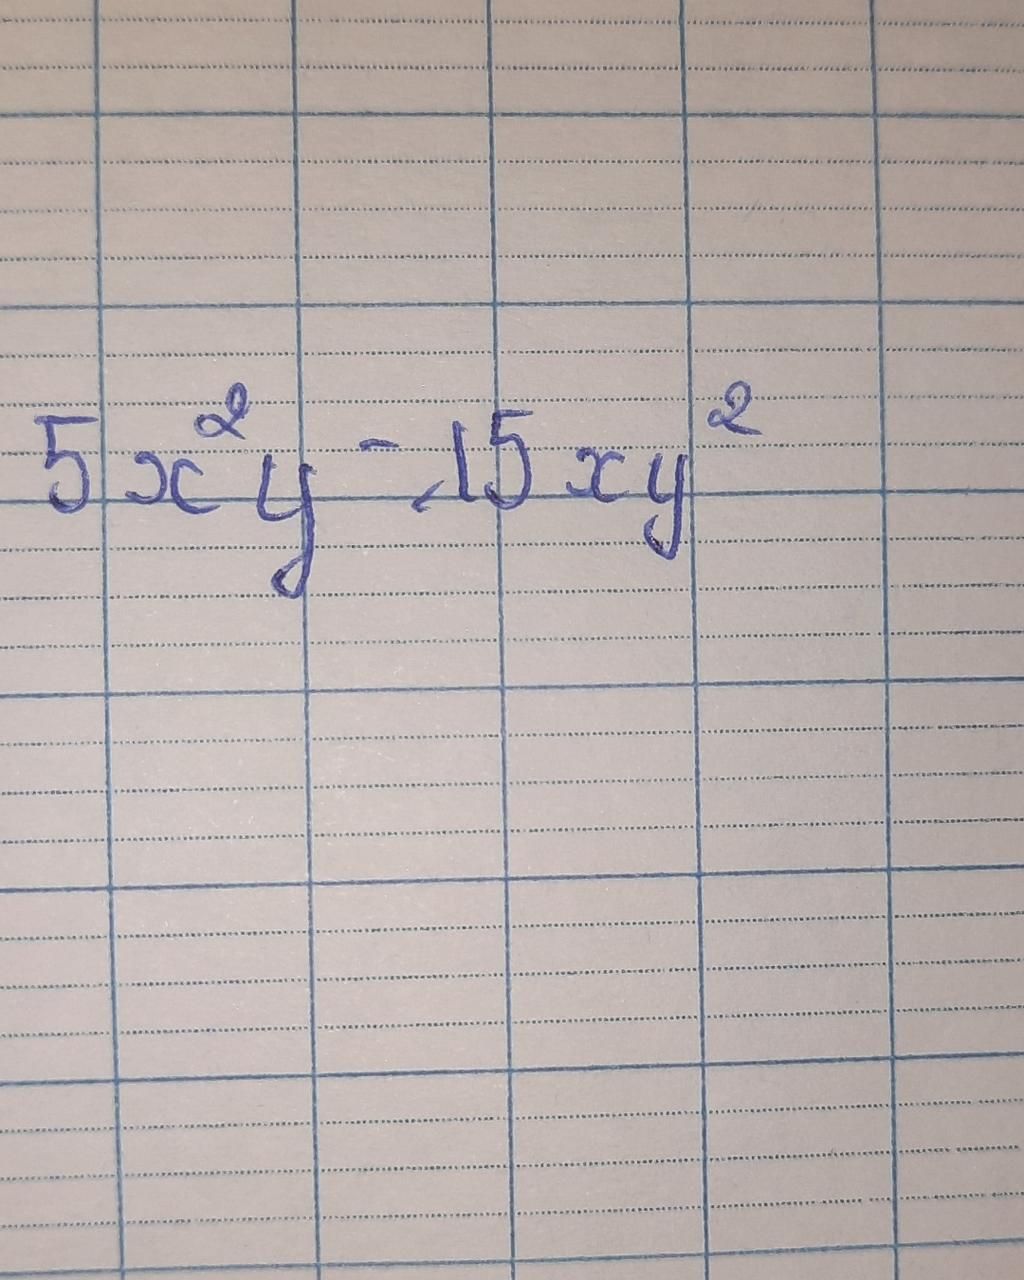 5x²y - 15xy²